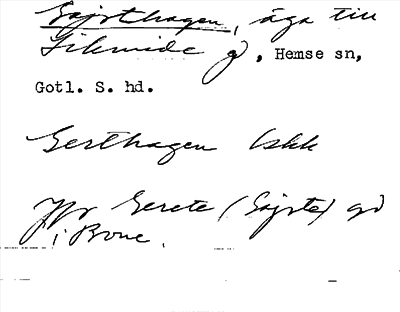 Gajrthagen, äga till
Smide g, Hemse sn,
Gotl. S. hd.
Gerthagen Lskk
Jfr Gerete (Gajrte) gd
i